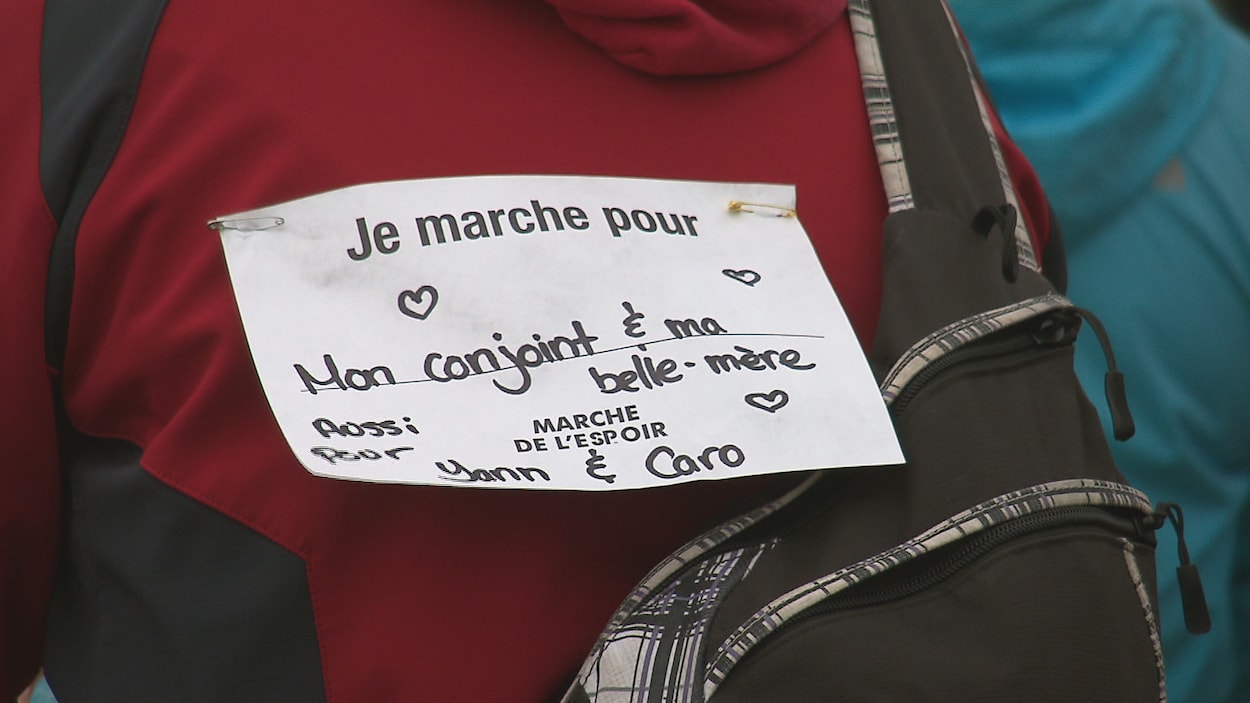 Je marche pour
Mon conjoint & ma
belle-mère
Aussi
pour
MARCHE
DE L'ESPOIR
Yann & Caro